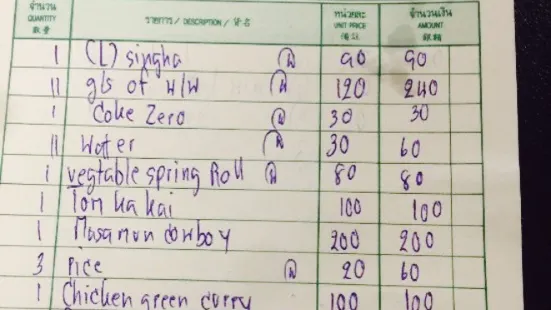 จำนวน รายการ / DESCRIPTION / หน่วยละ จำนวนเงิน
QUANTITY UNIT PRICE AMOUNT
1 (L) singha 90 90
11 gls of W/W 120 240
1 Coke Zero 30 30
11 Water 30 60
1 vegtable spring Roll 80 80
1 Tom ka kai 100 100
1 Masaman cowboy 200 200
3 Rice 20 60
1 Chicken green curry 100 100